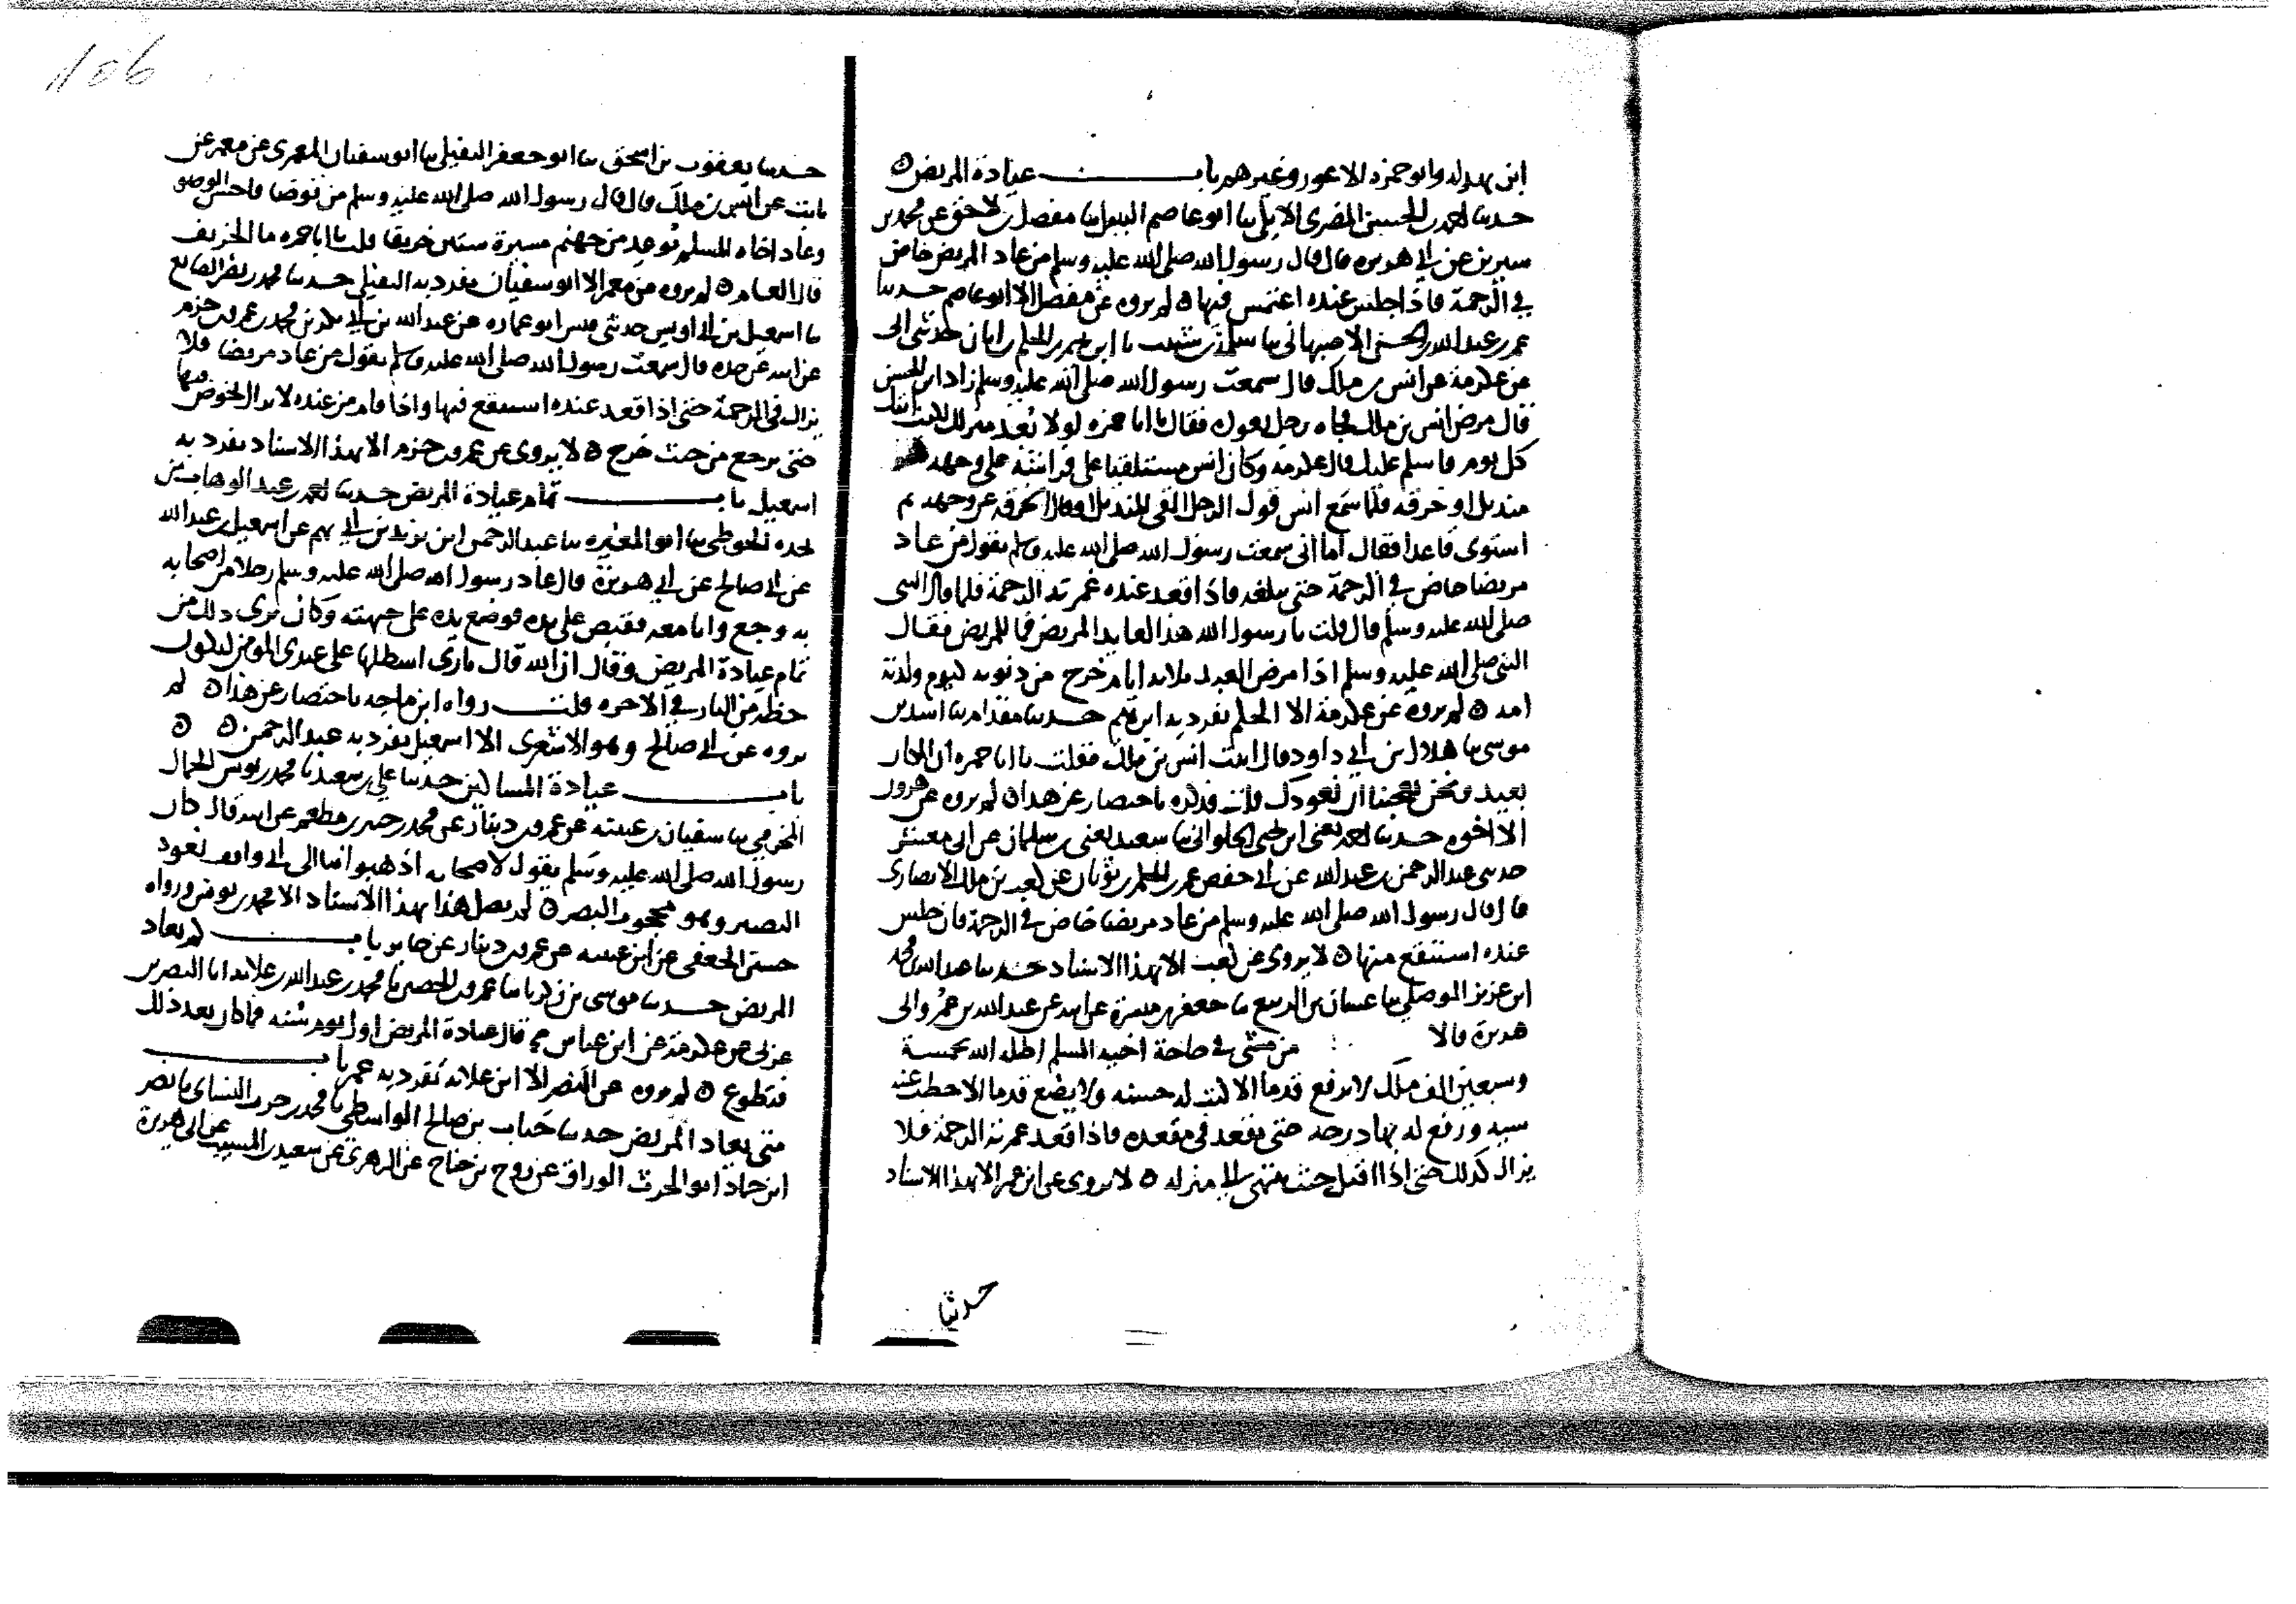 ابن بهدله وابو حمزه الاعور وغيرهم باب عيادة المريض ه
حدثنا احمد بن الحسين المصرى الايلى ثنا ابو عاصم النبيل ثنا مفضل بن لاحق عن محمد بن
سيرين عن ابي هريره قال قال رسول الله صلى الله عليه وسلم من عاد المريض خاض
في الرحمة فاذا جلس عنده اغتمس فيها ه لم يروه عن مفضل الا ابو عاصم حدثنا
عمر بن عبد الله بن الحسن الاصبهانى ثنا سلمة بن شبيب نا ابرهيم بن الحكم بن ابان حدثنى ابى
عن عكرمة عن انس بن ملك قال سمعت رسول الله صلى الله عليه وسلم زاد ابن الحسن
قال مرض انس بن ملك فجاه رجل يعوده فقال يا ابا حمزه لولا بُعد منزلك لكنت اتيك
كل يوم فاسلم عليك قال عكرمة وكان انس مستلقيا على فراشه على وجهه
منديل او خرقه فلما سمع انس قول الرجل القى المنديل او قال الخرقه عن وجهه ثم
استوى قاعدا فقال اما انى سمعت رسول الله صلى الله عليه وسلم يقول من عاد
مريضا خاض في الرحمة حتى يبلغه فاذا قعد عنده غمرته الرحمة فلما قال النبى
صلى الله عليه وسلم قال قلت يا رسول الله هذا العايد المريض فما للمريض فقال
النبي صلى الله عليه وسلم اذا مرض العبد ثلاثه ايام خرج من ذنوبه كيوم ولدته
امه ه لم يروه عن عكرمة الا الحكم تفرد به ابرهيم حدثنا مقدام ثنا اسد بن
موسى ثنا هلال بن ابي داود قال اتيت انس بن ملك فقلت يا ابا حمزه ان المكان
بعيد ونحن يعجبنا ان نعودك قلت فذكره باختصار عن هذا ه لم يروه عن هرون
الا اخوه حدثنا احمد يعنى ابن يحيى الحلوانى ثنا سعيد يعنى بن سليمان عن ابى معشر
حدثنى عبد الرحمن بن عبد الله عن ابي حفص عمر بن الحكم بن ثوبان عن كعب بن ملك الانصارى
قال قال رسول الله صلى الله عليه وسلم من عاد مريضا خاض في الرحمة فان جلس
عنده استنقع منها ه لا يروى عن كعب الا بهذا الاسناد حدثنا عبد الله بن محمد
ابن عزيز الموصلى ثنا غسان بن الربيع نا جعفر بن ميسرة عن ابيه عن عبد الله بن عمر وابى
هريرة قالا من مشى في حاجة اخيه المسلم اظله الله بخمسة
وسبعين الف ملك لا يرفع قدما الا كتبت له حسنه ولا يضع قدما الا حطت عنه
سيه ورفع له بها درجه حتى يقعد في مقعده فاذا قعد غمرته الرحمة فلا
يزال كذلك حتى اذا اقبل حيث ينتهى الى منزله ه لا يروى عن ابن عمر الا بهذا الاسناد
حدثنا
حدثنا يعقوب بن اسحق ثنا ابو جعفر النفيلى ثنا ابو سفيان المعمرى عن معمر عن
ثابت عن انس بن ملك قال قال رسول الله صلى الله عليه وسلم من توضا فاحسن الوضو
وعاد اخاه المسلم بُوعد من جهنم مسيرة ستين خريفا قلت يا ابا حمزه ما الخريف
قال العام ه لم يروه عن معمر الا ابو سفيان تفرد به النفيلى حدثنا محمد بن نصر الصايغ
نا اسمعيل بن ابي اويس حدثنى قيس ابو عماره عن عبد الله بن ابي بكر بن محمد بن عمرو بن حزم
عن ابيه عن جده قال سمعت رسول الله صلى الله عليه وسلم يقول من عاد مريضا فلا
يزال في الرحمة حتى اذا قعد عنده استنقع فيها واذا قام من عنده لا يزال يخوض فيها
حتى يرجع من حيث خرج ه لا يروى عن عمرو بن حزم الا بهذا الاسناد تفرد به
اسمعيل باب تمام عيادة المريض حدثنا احمد بن عبد الوهاب بن
نجده الحوطى ثنا ابو المغيره ثنا عبد الرحمن ابن يزيد بن تميم عن اسمعيل بن عبد الله
عن ابي صالح عن ابي هريرة قال عاد رسول الله صلى الله عليه وسلم رجلا من اصحابه
به وجع وانا معه فقبض على يده فوضع يده على جبهته وكان يرى ذلك من
تمام عيادة المريض وقال ان الله قال نارى اسلطها على عبدى المومن ليكون
حظه من النار في الاخره قلت رواه ابن ماجه باختصار عن هذا ه لم
يروه عن ابي صالح وهو الاشعرى الا اسمعيل تفرد به عبد الرحمن ه ه
باب عيادة المساكين حدثنا على بن سعيد نا محمد بن يونس الجمال
المخرمى ثنا سفيان بن عيينه عن عمرو بن دينار عن محمد بن جبير بن مطعم عن ابيه قال كان
رسول الله صلى الله عليه وسلم يقول لاصحابه اذهبوا بنا الى بنى واقف نعود
البصير وهو محجوب البصر ه لم يصل هذا بهذا الاسناد الا محمد بن يونس ورواه
حسين الجعفى عن ابن عيينه عن عمرو بن دينار عن جابر باب كم يعاد
المريض حدثنا موسى بن زكريا ثنا عمرو بن الحصين نا محمد بن عبد الله بن علاثه انا النضر بن
عربى عن عكرمة عن ابن عباس قال عيادة المريض اول يوم سُنه فما كان بعد ذلك
فتطوع ه لم يروه عن النضر الا ابن علاثه تفرد به عمرو باب
متى يعاد المريض حدثنا حباب بن صالح الواسطى نا محمد بن حرب النساى نا نصر
ابن حماد ابو الحرث الوراق عن روح بن جناح عن الزهرى عن سعيد بن المسيب عن ابى هريرة